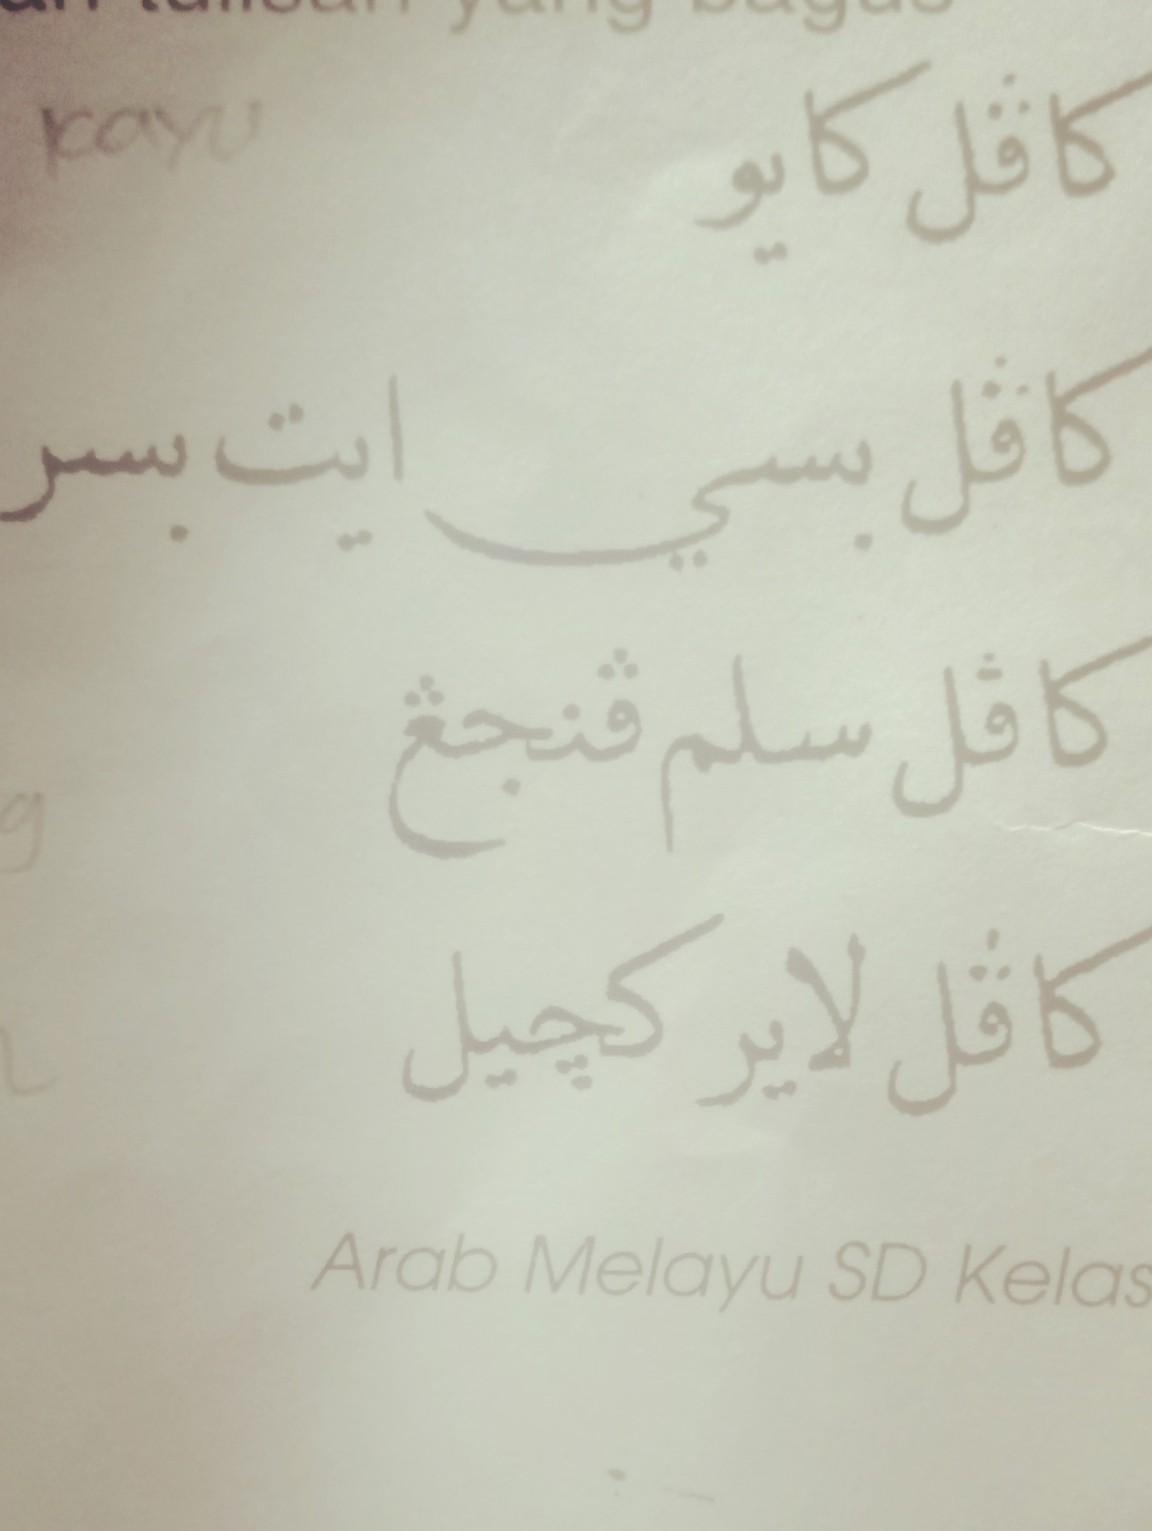 tulisan yang bagus
kayu كاڤل كايو
كاڤل بسي ايت بسر
كاڤل سلم ڤنجڠ
كاڤل لاير كچيل
Arab Melayu SD Kelas